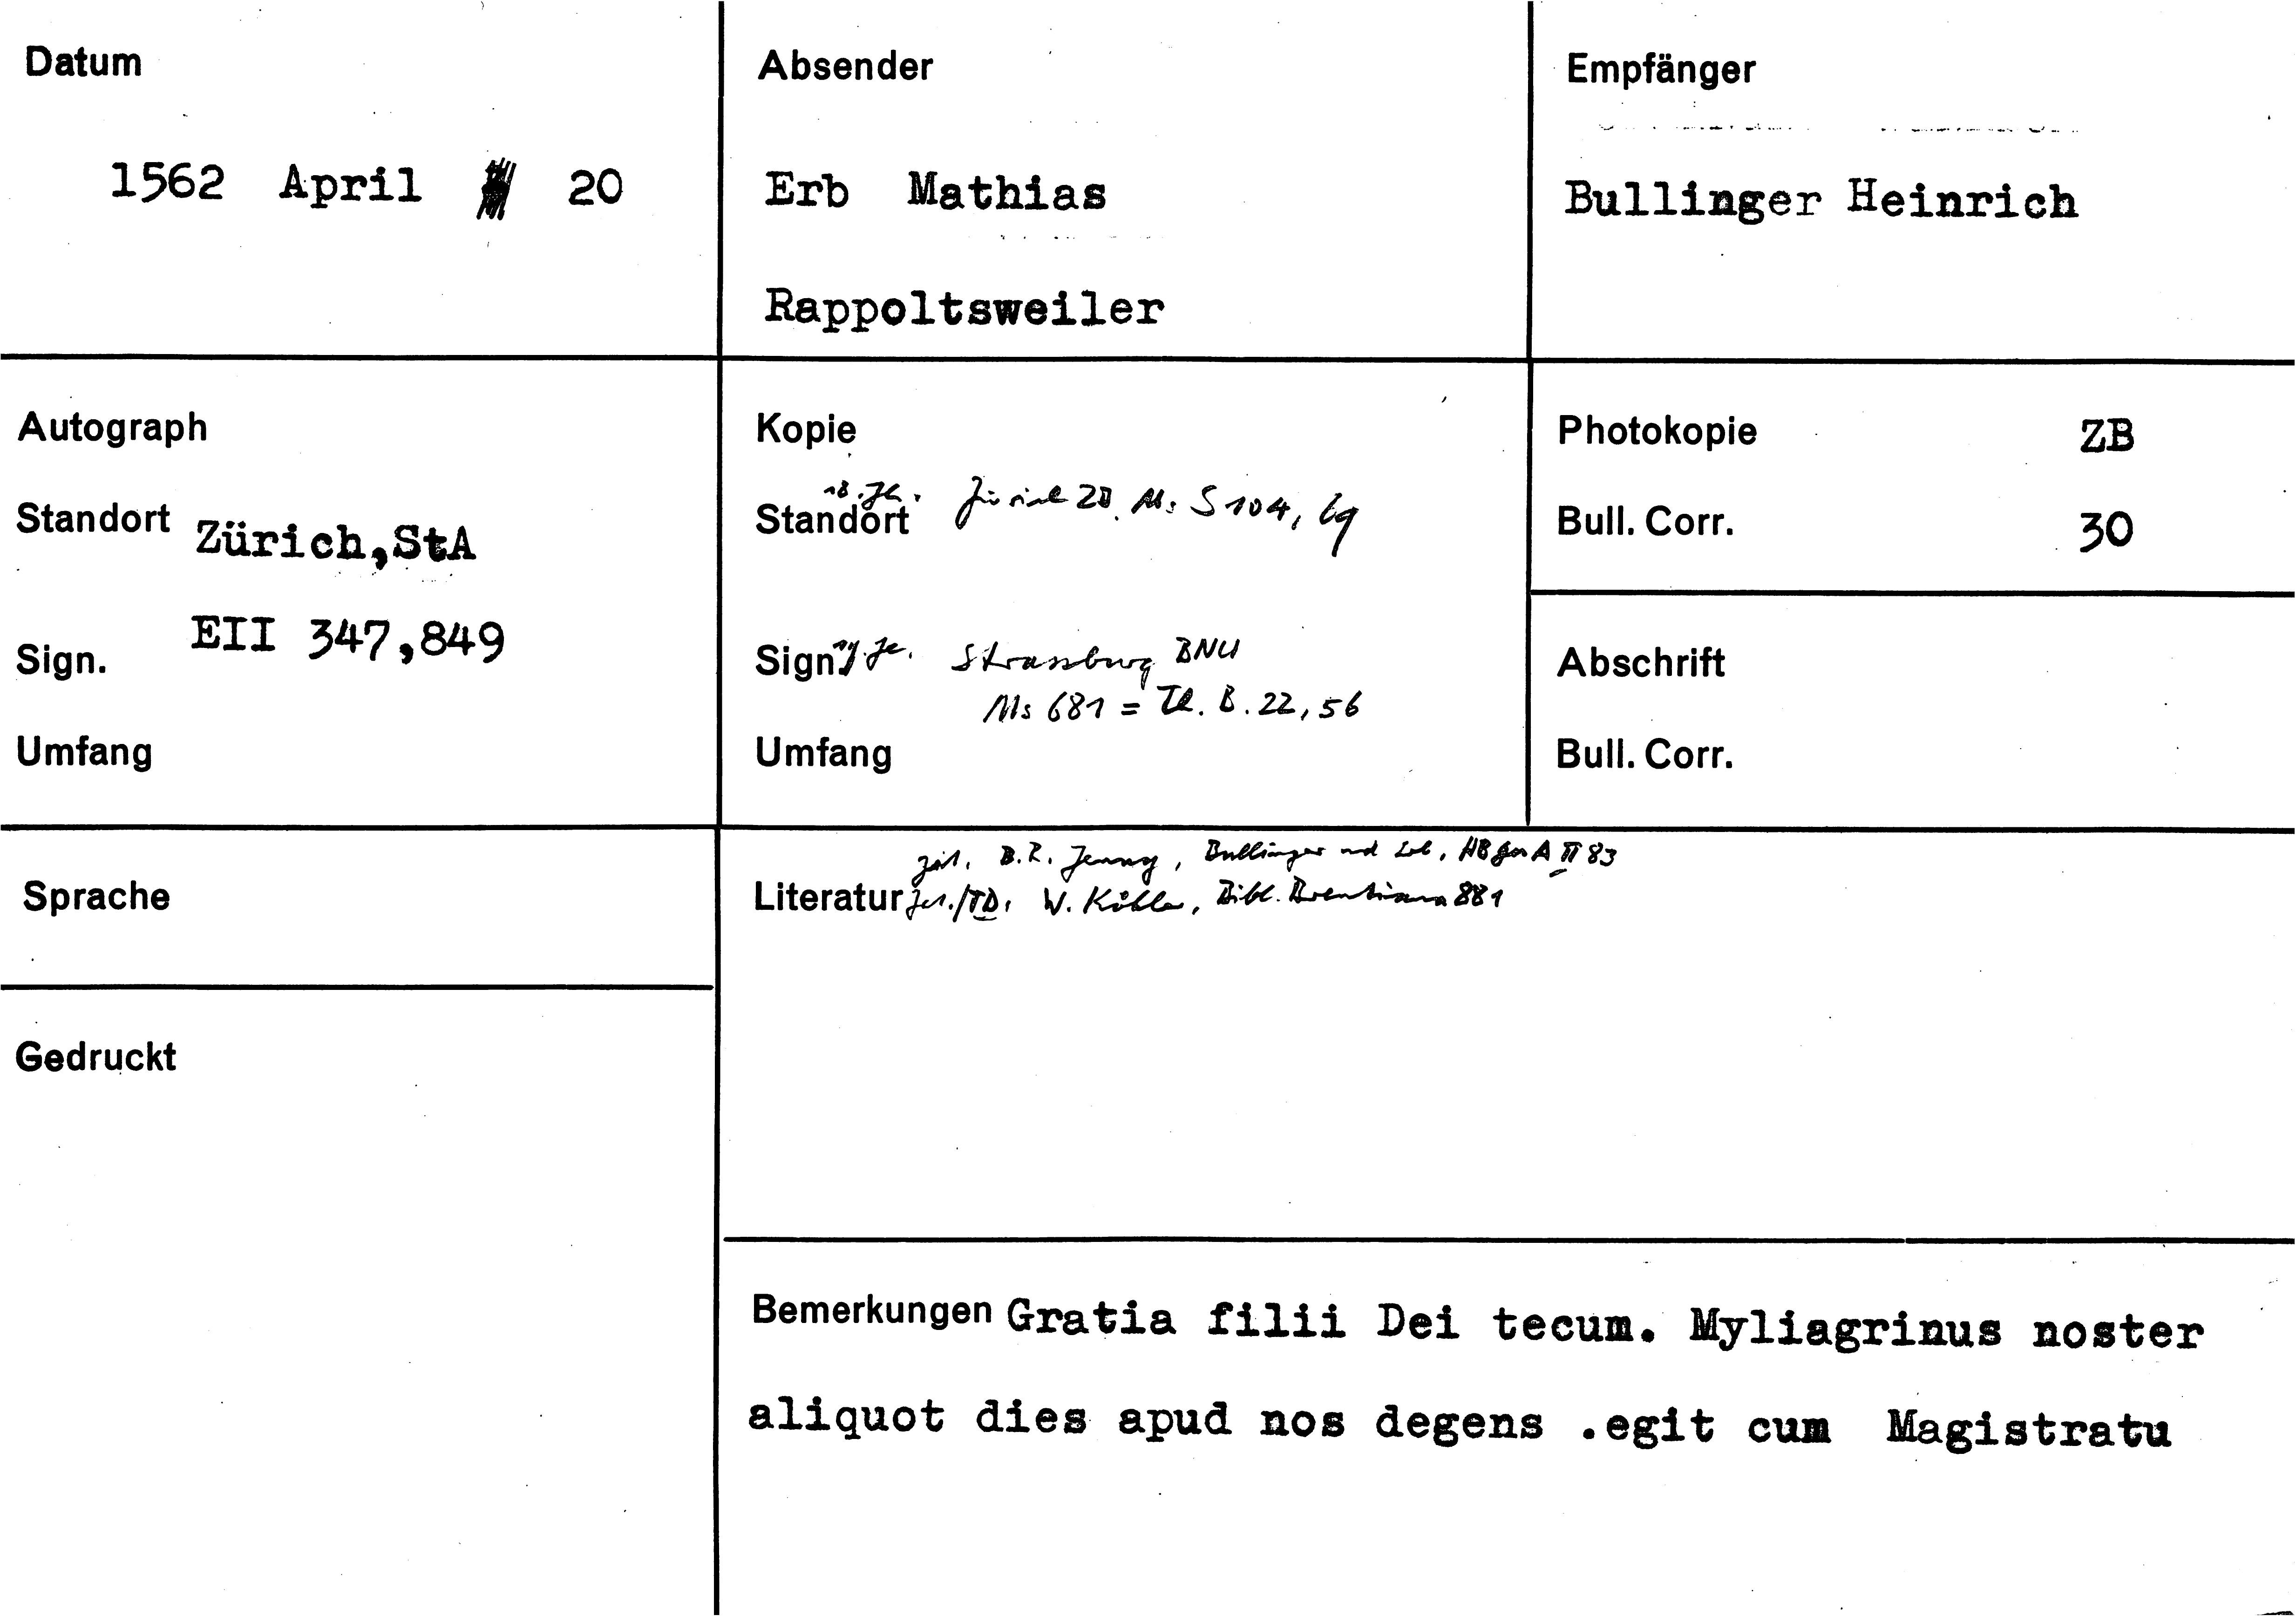 Datum
1562 April 20
Absender
Erb Mathias
Rappoltsweiler
Empfänger
Bullinger Heinrich
Autograph
Standort Zürich,StA
Sign. EII 347,849
Umfang
Kopie
18. Jh.
Standort Zürich ZB Ms S 104, 69
Sign. Jh. Strassburg BNU
Ms 681 = Th. B. 22, 56
Umfang
Photokopie ZB
Bull. Corr. 30
Abschrift
Bull. Corr.
Sprache
Gedruckt
zit. B.R. Jenny, Bullinger und II 83
Literatur W. Köhler, Bibl. Brentiana 881
Bemerkungen Gratia filii Dei tecum. Myliagrinus noster
aliquot dies apud nos degens .egit cum Magistratu